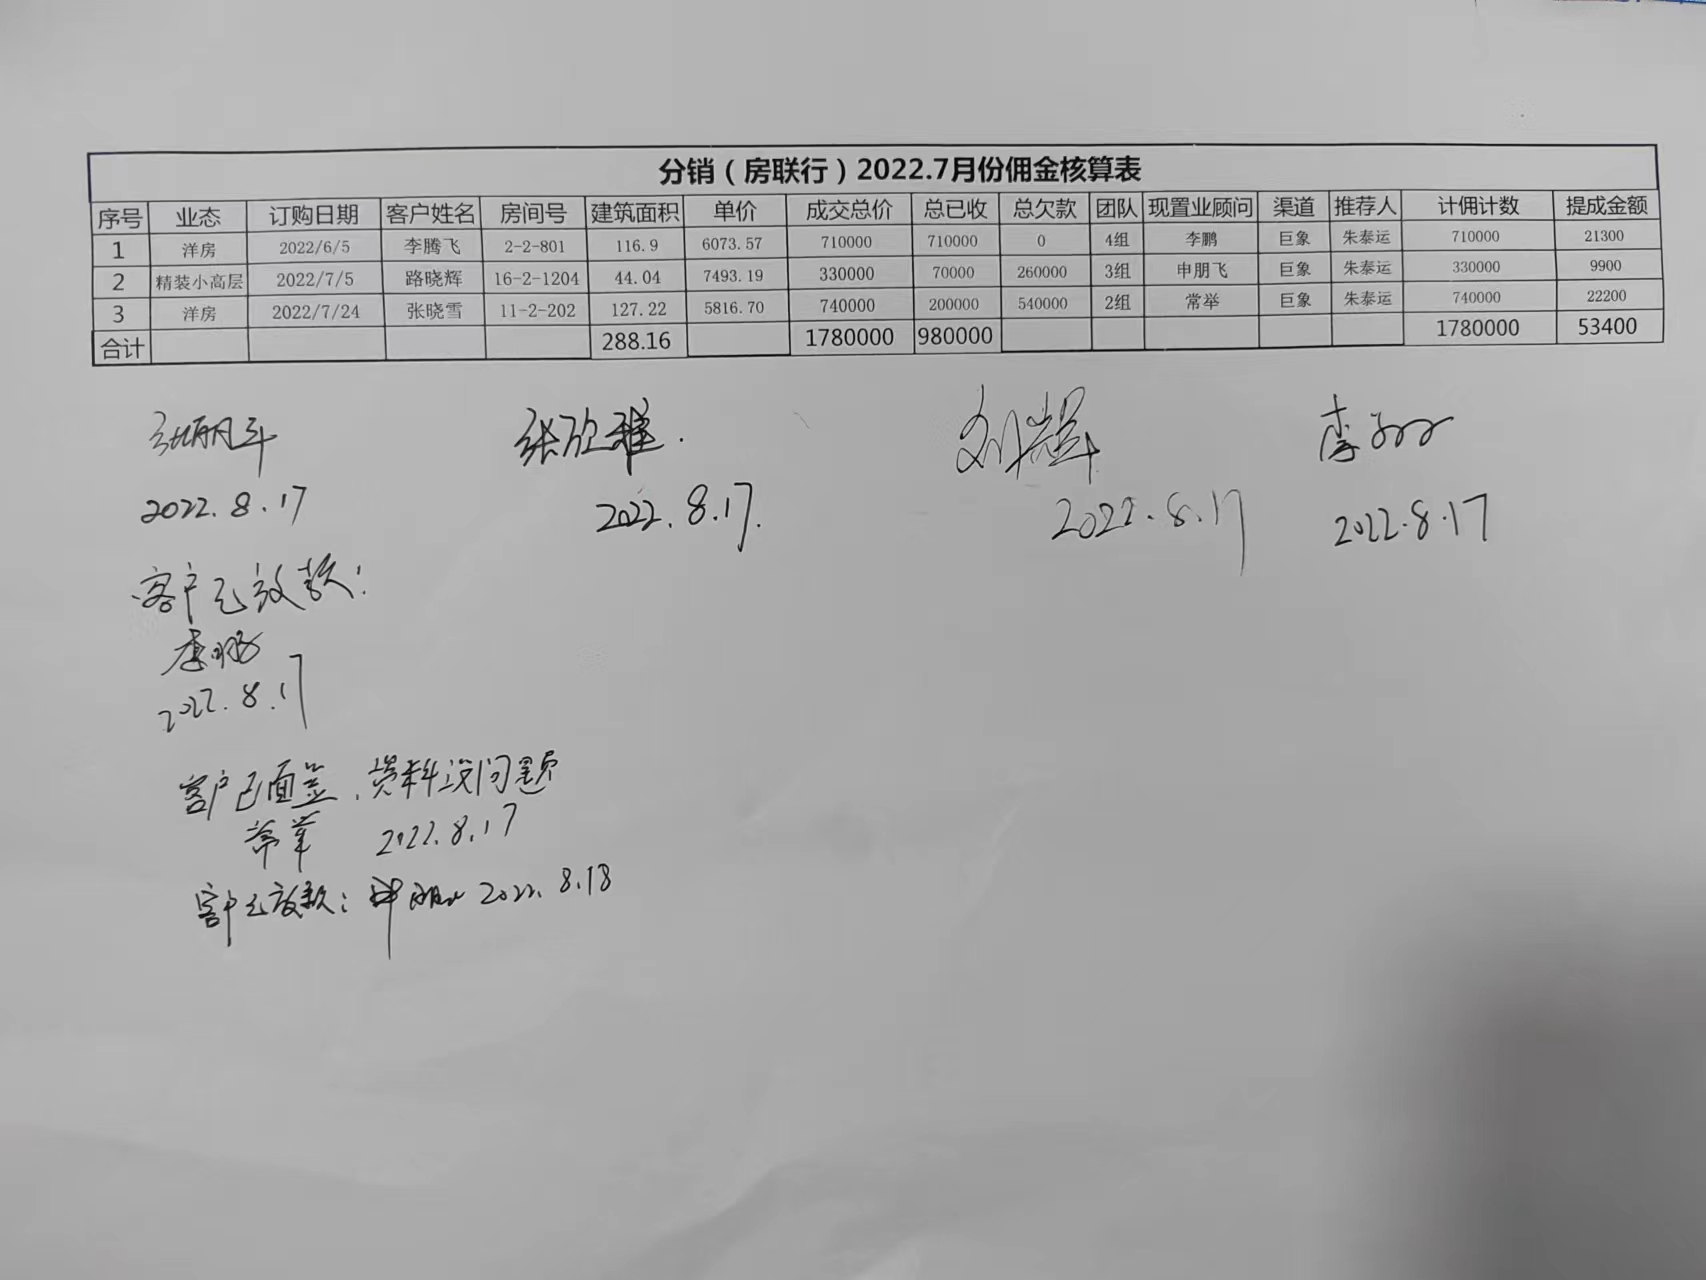 分销（房联行）2022.7月份佣金核算表
序号 业态 订购日期 客户姓名 房间号 建筑面积 单价 成交总价 总已收 总欠款 团队 现置业顾问 渠道 推荐人 计佣计数 提成金额
1 洋房 2022/6/5 李腾飞 2-2-801 116.9 6073.57 710000 710000 0 4组 李鹏 巨象 朱泰运 710000 21300
2 精装小高层 2022/7/5 路晓辉 16-2-1204 44.04 7493.19 330000 70000 260000 3组 申朋飞 巨象 朱泰运 330000 9900
3 洋房 2022/7/24 张晓雪 11-2-202 127.22 5816.70 740000 200000 540000 2组 常举 巨象 朱泰运 740000 22200
合计 288.16 1780000 980000 1780000 53400
张欣雅 刘辉 李
2022.8.17 2022.8.17. 2022.8.17 2022.8.17
客户已放款：
李鹏
2022.8.17
客户已面签，资料没问题
常举 2022.8.17
客户已放款：申朋飞 2022.8.18